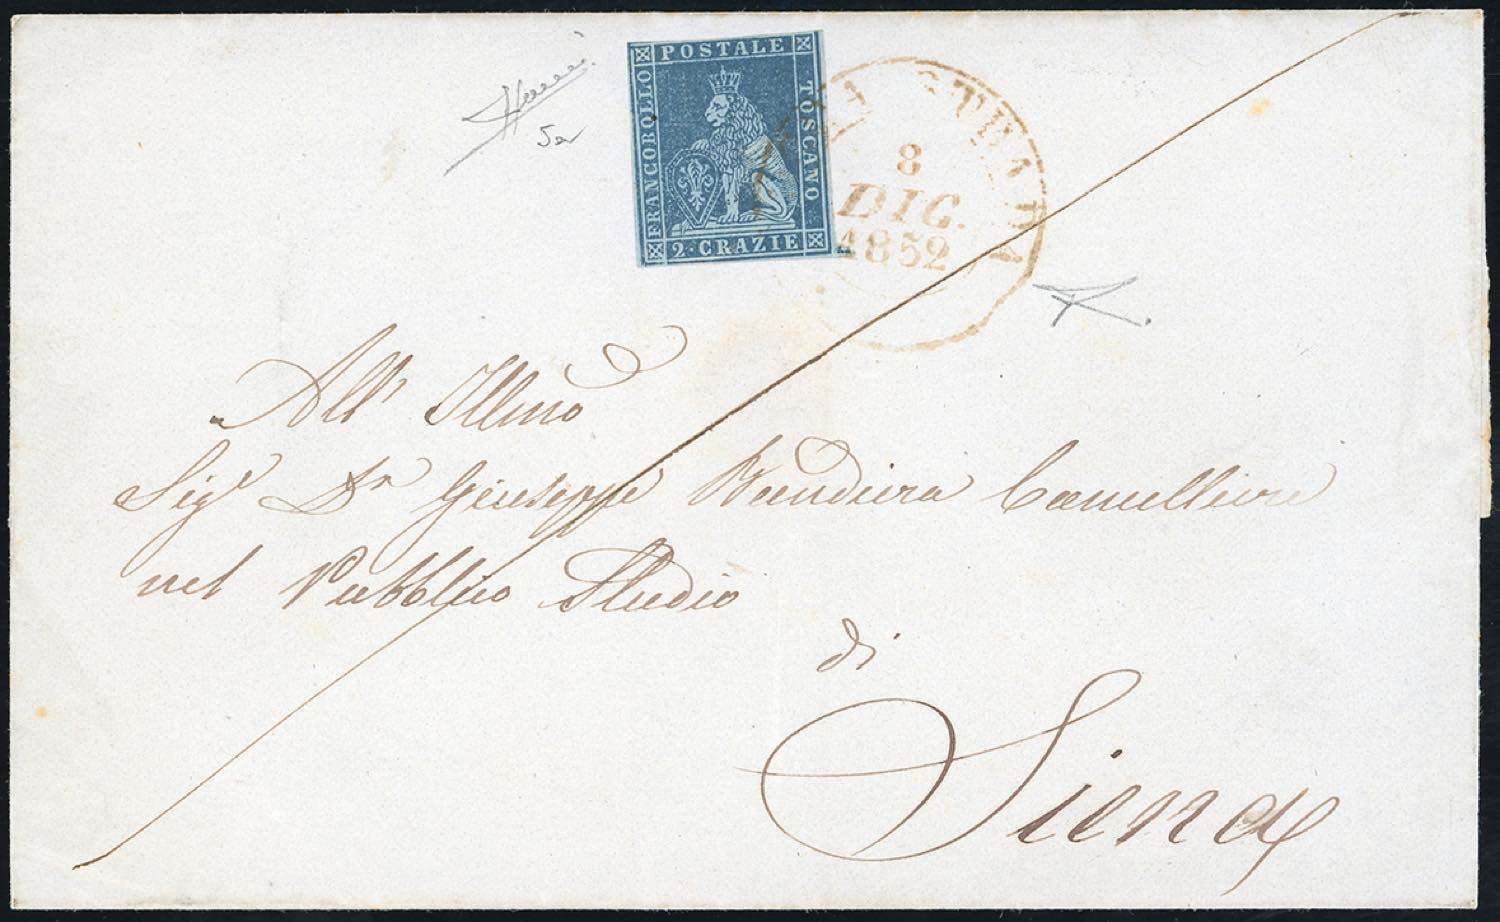 FRANCOBOLLO
POSTALE
TOSCANO
2·CRAZIE
8
DIG.
1852
All' Illmo
Sigr Dr Giuseppe Bandiera Cancelliere
nel Pubblico Studio
di
Siena